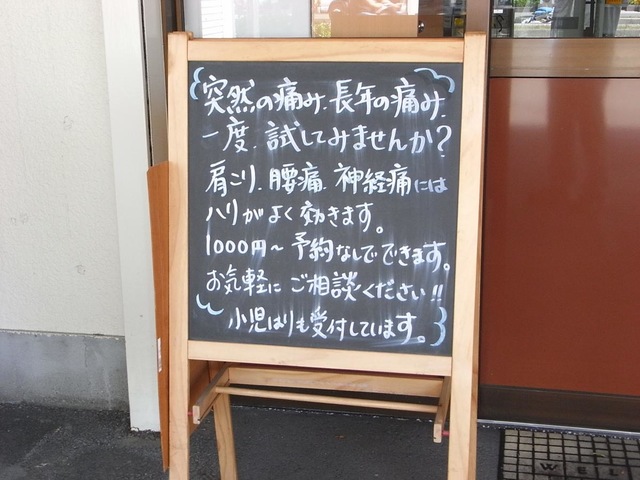 突然の痛み、長年の痛み、
一度、試してみませんか?
肩こり、腰痛、神経痛には
ハリがよく効きます。
1000円~ 予約なしでできます。
お気軽にご相談ください!!
小児はりも受付しています。
WEL